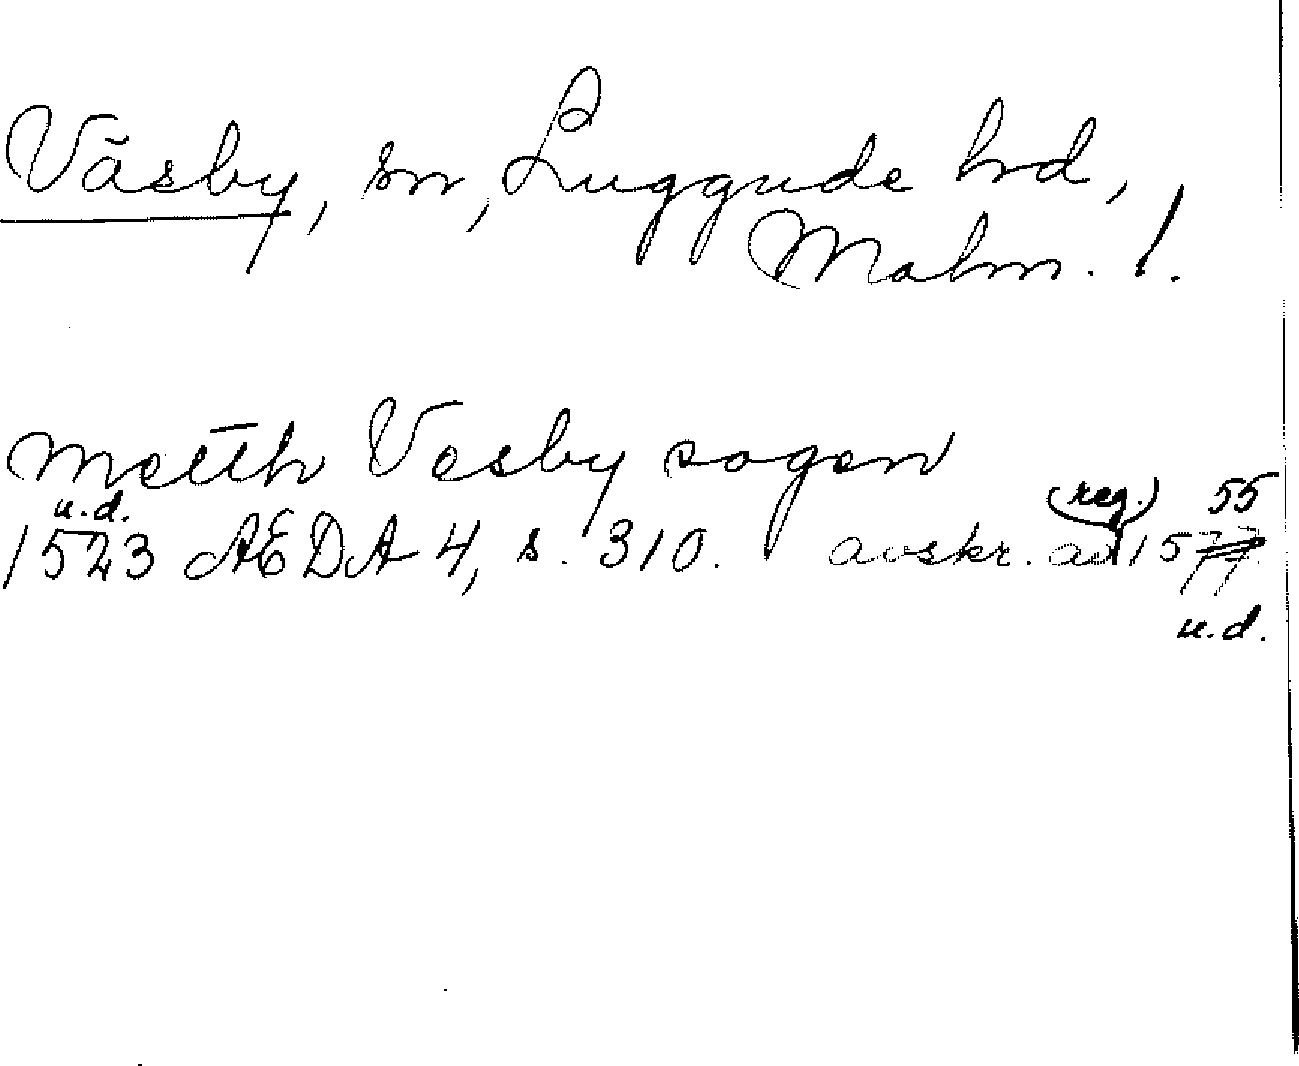 Väsby, sn, Luggude hd,
Malm. l.
metth Vesby sogen
u.d. (reg.) 55
1523 AEDA 4, s. 310. avskr. av 1577
u.d.